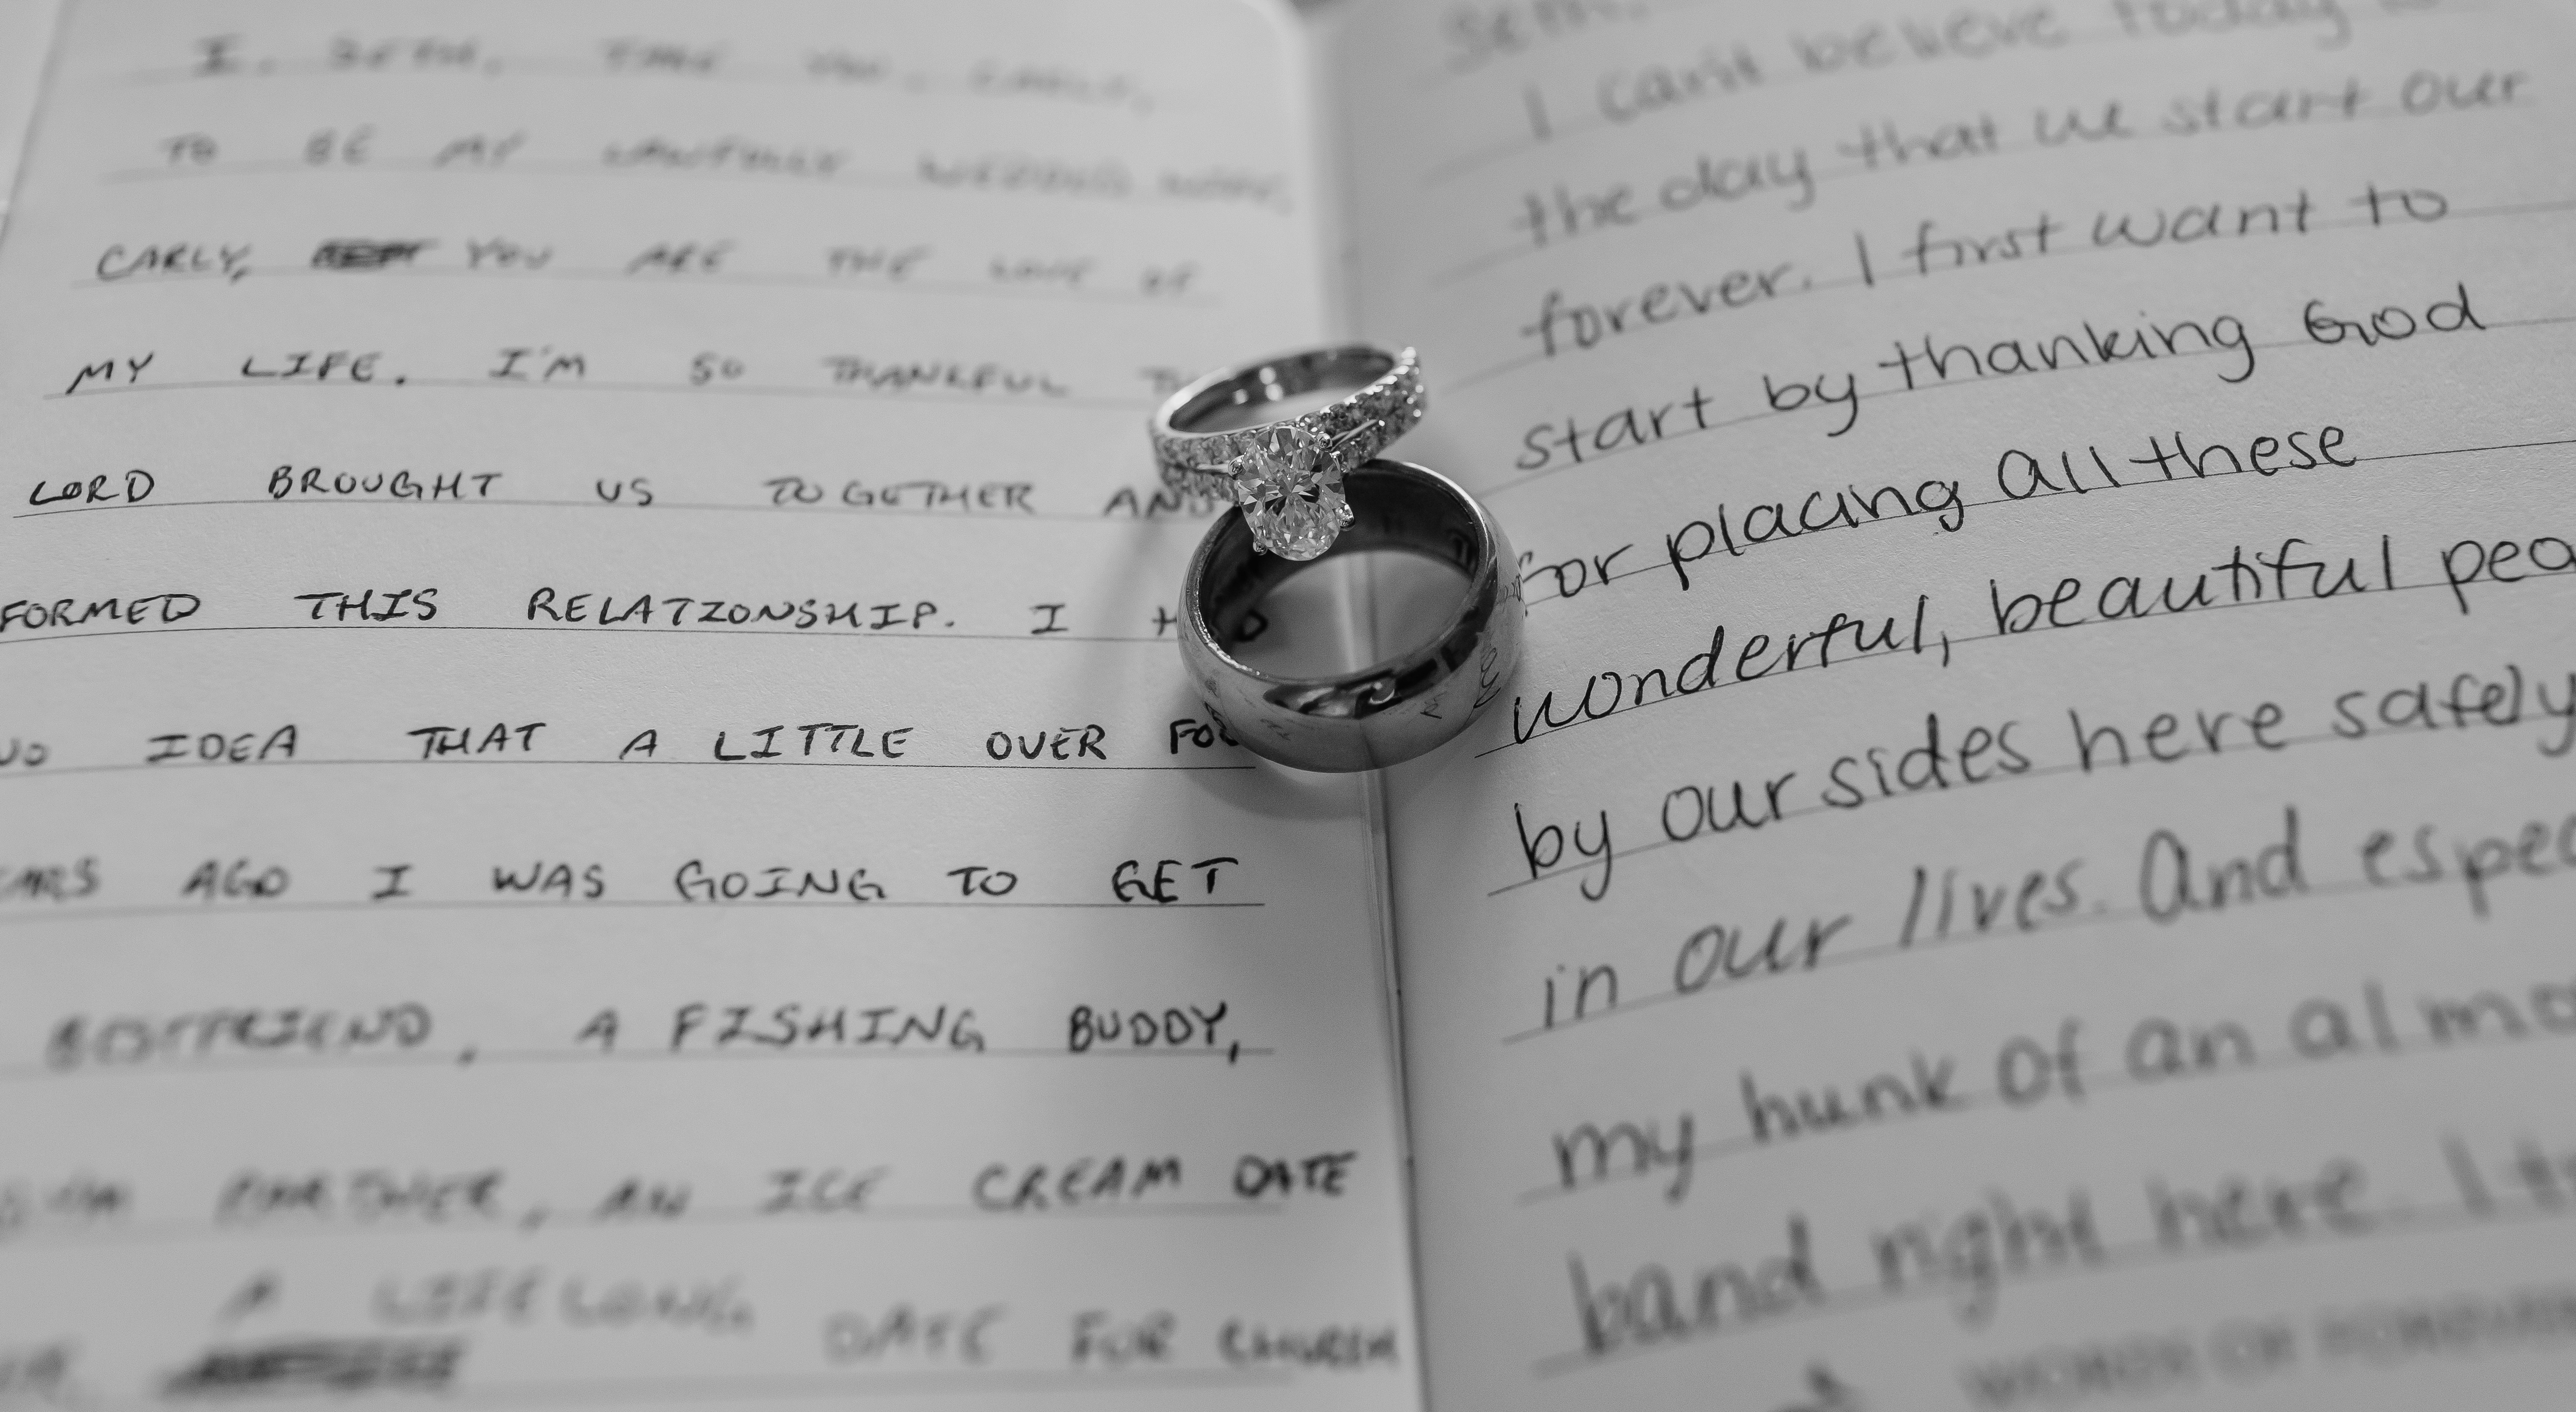 I, SETH, TAKE YOU, CARLY,
TO BE MY LAWFULLY WEDDED WIFE.
CARLY, YOU ARE THE LOVE OF
MY LIFE. I'M SO THANKFUL THE
LORD BROUGHT US TOGETHER AND
FORMED THIS RELATIONSHIP. I HAD
NO IDEA THAT A LITTLE OVER
AGO I WAS GOING TO GET
BOYFRIEND, A FISHING BUDDY,
PARTNER, AN ICE CREAM DATE
A LIFELONG DATE FOR CHURCH
Seth,
I can't believe today is
the day that we start our
forever. I first want to
start by thanking God
for placing all these
wonderful, beautiful peo
by our sides here safely
in our lives. And espec
my hunk of an almo
band right here. I